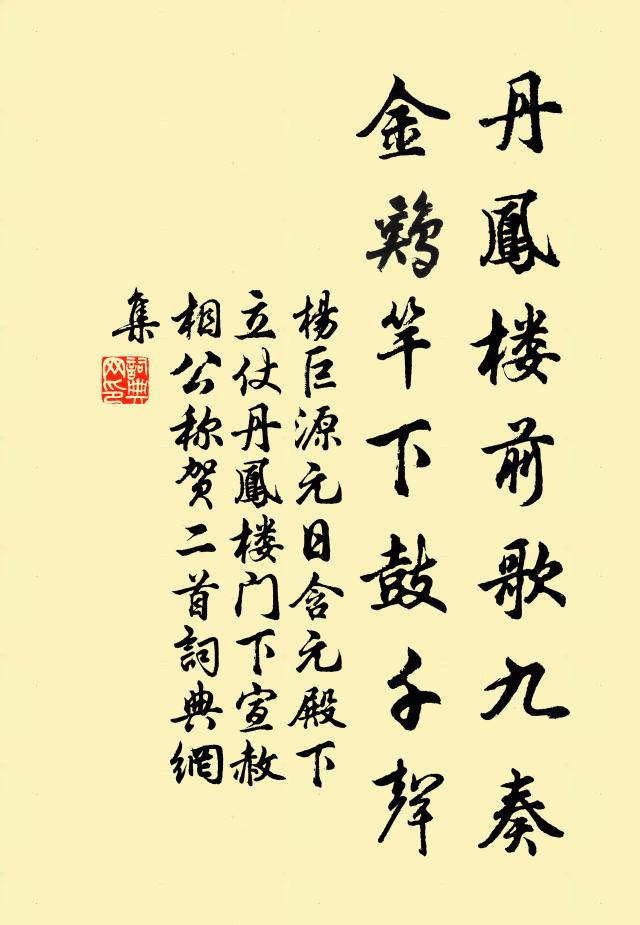 丹鳳楼前歌九奏
金鶏竿下鼓千聲
楊巨源元日含元殿下
立仗丹鳳楼门下宣赦
相公称贺二首詞典網
集
詞典
网印